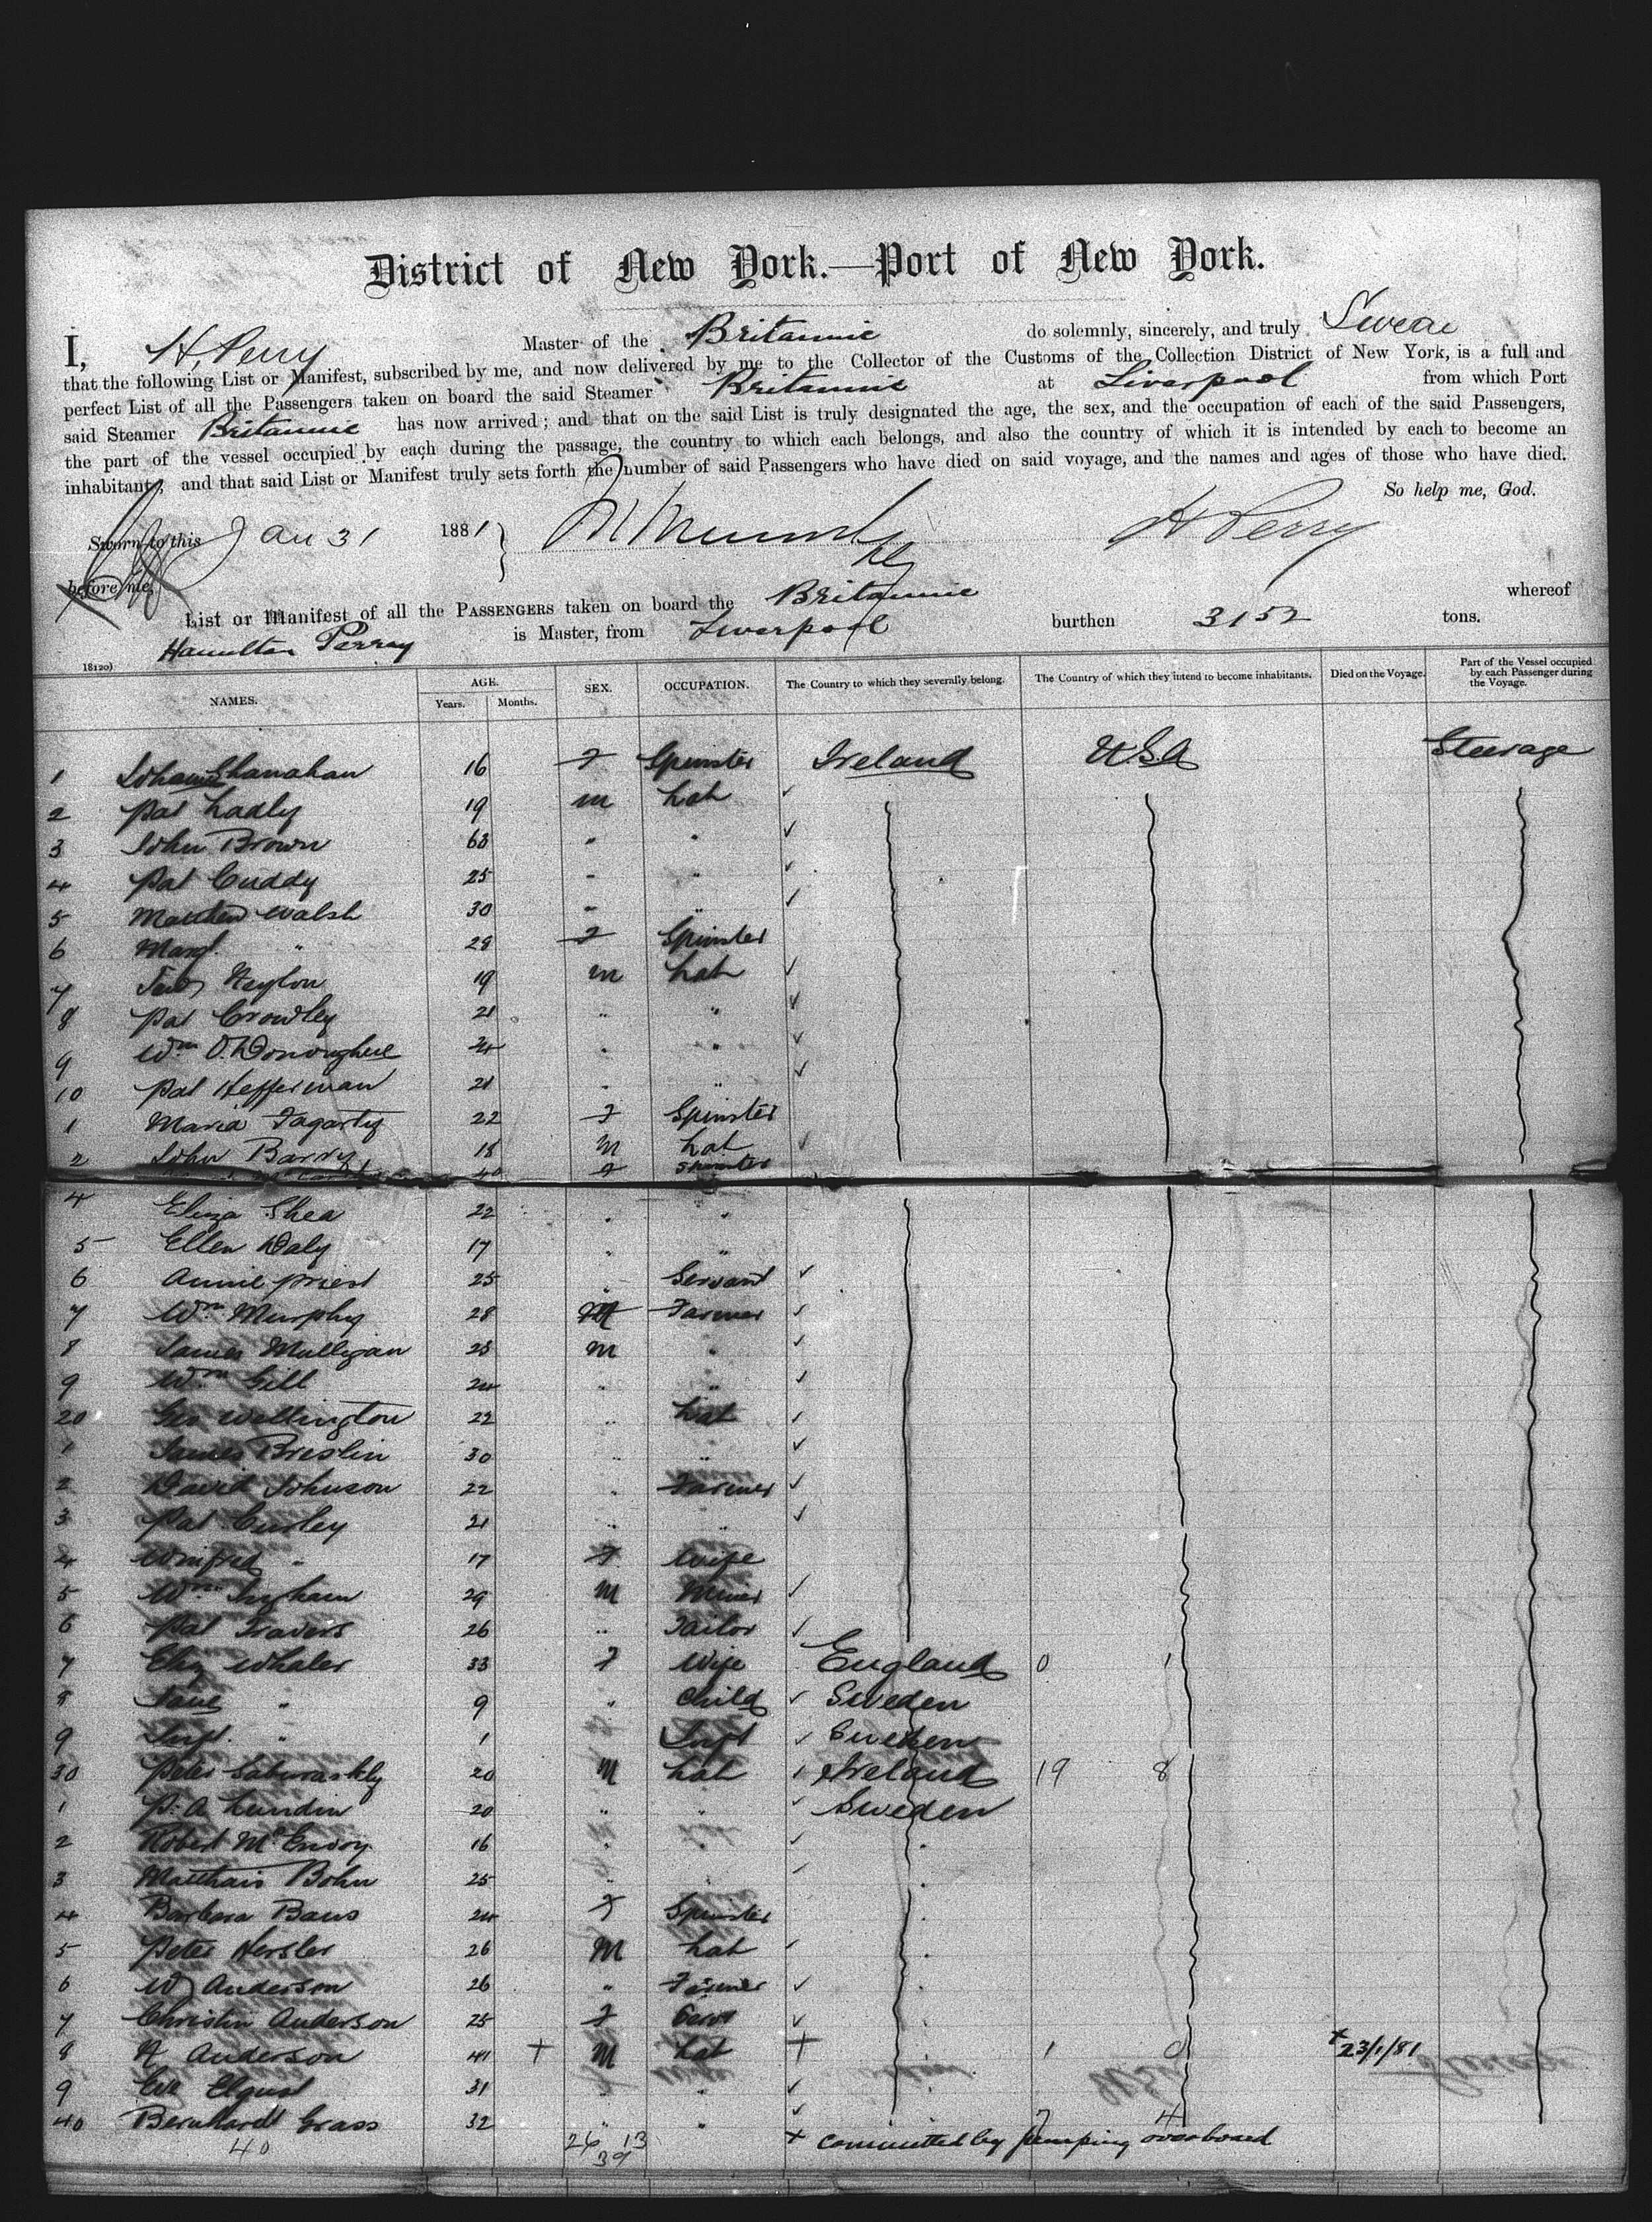 District of New York.—Port of New York.
I, H Perry Master of the Britannic do solemnly, sincerely, and truly Swear
that the following List or Manifest, subscribed by me, and now delivered by me to the Collector of the Customs of the Collection District of New York, is a full and
perfect List of all the Passengers taken on board the said Steamer Britannic at Liverpool from which Port
said Steamer Britannic has now arrived; and that on the said List is truly designated the age, the sex, and the occupation of each of the said Passengers,
the part of the vessel occupied by each during the passage, the country to which each belongs, and also the country of which it is intended by each to become an
inhabitant; and that said List or Manifest truly sets forth the number of said Passengers who have died on said voyage, and the names and ages of those who have died.
So help me, God.
Sworn to this Jan 31 1881 H Perry
before me,
List or Manifest of all the PASSENGERS taken on board the Britannic whereof
Hamilton Perry is Master, from Liverpool burthen 3152 tons.
18120)
NAMES. AGE. Years. Months. SEX. OCCUPATION. The Country to which they severally belong. The Country of which they intend to become inhabitants. Died on the Voyage. Part of the Vessel occupied by each Passenger during the Voyage.
1 Johanna Shanahan 16 F Spinster Ireland USA Steerage
2 Pat 19 m Lab
3 John Brown 63 " "
4 Pat Cuddy 25 " "
5 Matthew Walsh 30 " "
6 Margt. " 28 F Spinster
7 Heylon 19 m Lab
8 Pat Crowley 21 " "
9 Wm O'Donoughue 24 " "
10 Pat Heffernan 21 " "
1 Maria Fogarty 22 F Spinster
2 John Barry 18 M Lab
40 F Spinster
4 Eliza Shea 22 " "
5 Ellen Daly 17 " "
6 Annie Priest 25 " Servant
7 Wm Murphy 28 M Farmer
8 James Mulligan 28 M "
9 Wm Gill 24 " "
20 Geo Wellington 22 " Lab
1 James Breslin 30 " "
2 David Johnson 22 " Farmer
3 Pat Curley 21 " "
4 Winifred " 17 F Wife
5 Wm Ingham 29 M Miner
6 Pat Travers 26 " Tailor
7 Eliz Whaler 33 F Wife England 0 1
8 Jane " 9 " Child Sweden
9 Inft. " 1 Inft Sweden
30 Peter 20 M Lab Ireland 19 8
1 P. A. Lundin 20 " " Sweden
2 Robert McEnvoy 16 " "
3 Matthais Bohn 25 " "
4 Barbara Baus 24 F Spinster
5 Peter Hersler 26 M Lab
6 W Anderson 26 " Farmer
7 Christin Anderson 25 F
8 N Anderson 41 + M Lab + 1 0 +23/1/81
9 Elqust 31 " "
40 Bernhardt Grass 32 " " 7 4
40 26 13
39
+ Committed by jumping overboard